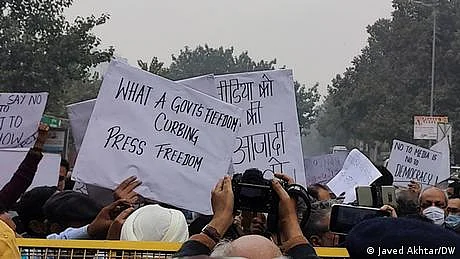 SAY NO
TO
WHAT A GOVTS TIEFDOM
CURBING
PRESS FREEDOM
मीडिया को
की
आज़ादी
NO TO MEDIA IS
NO TO
DEMOCRACY
© Javed Akhtar/DW